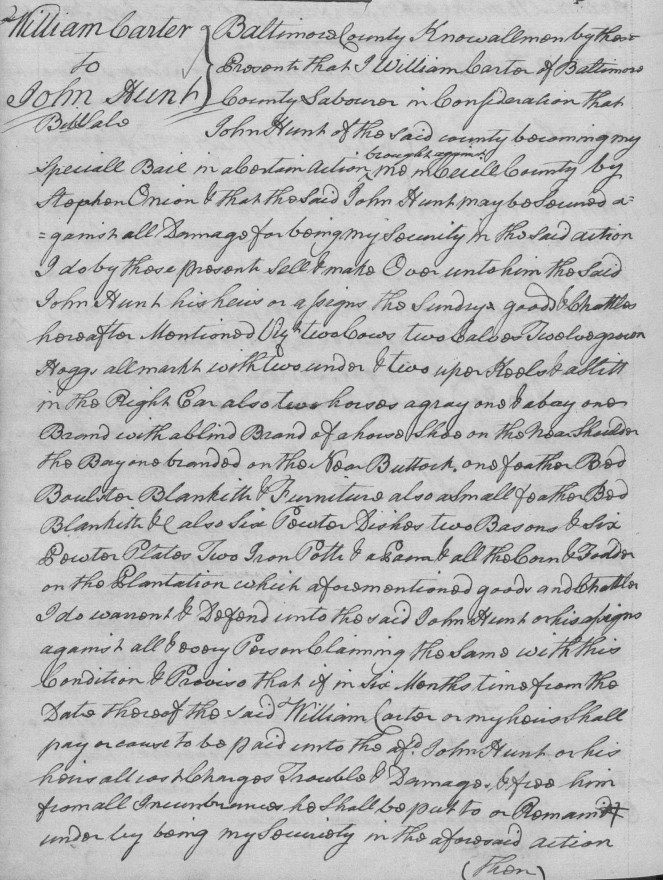 William Carter
to
John Hunt
Bill Sale
Baltimore County Know all men by these
Presents that I William Carter of Baltimore
County Labourer in Consideration that
John Hunt of the said county becoming my
Speciall Baie in a Certain Action brought against me in Cecill County by
Stephen Onion & that the said John Hunt may be Secured a=
=gainst all Damage for being my Security in the said action
I do by these present Sell & make Over unto him the Said
John Hunt his heirs or assigns the Sundrys goods & Chattles
hereafter Mentioned Viz two Cows two Calves Twelve grown
Hoggs all markt with two under & two uper Keels & a Slitt
in the Right Ear also two horses a gray one & a bay one
Brand with a blind Brand of a horse Shoe on the near Shoulder
the Bay one branded on the Near Buttock. one feather Bed
Boulster Blankitts & Furniture also a Small feather Bed
Blankitts &c also Six Pewter Dishes two Basons & Six
Pewter Plates Two Iron Potts & a & all the Corn & Fodder
on the Plantation which aforementioned goods and Chattles
I do warrent & Defend unto the said John Hunt or his assigns
against all & every Person Claiming the Same with this
Condition & Proviso that if in Six Months time from the
Date thereof the said William Carter or my heirs Shall
pay or cause to be paid unto the afd. John Hunt or his
heirs all cost Charges Trouble & Damages & free him
from all Incumbrances he Shall be put to or Remain
under by being my Security in the aforesaid action
(Then)